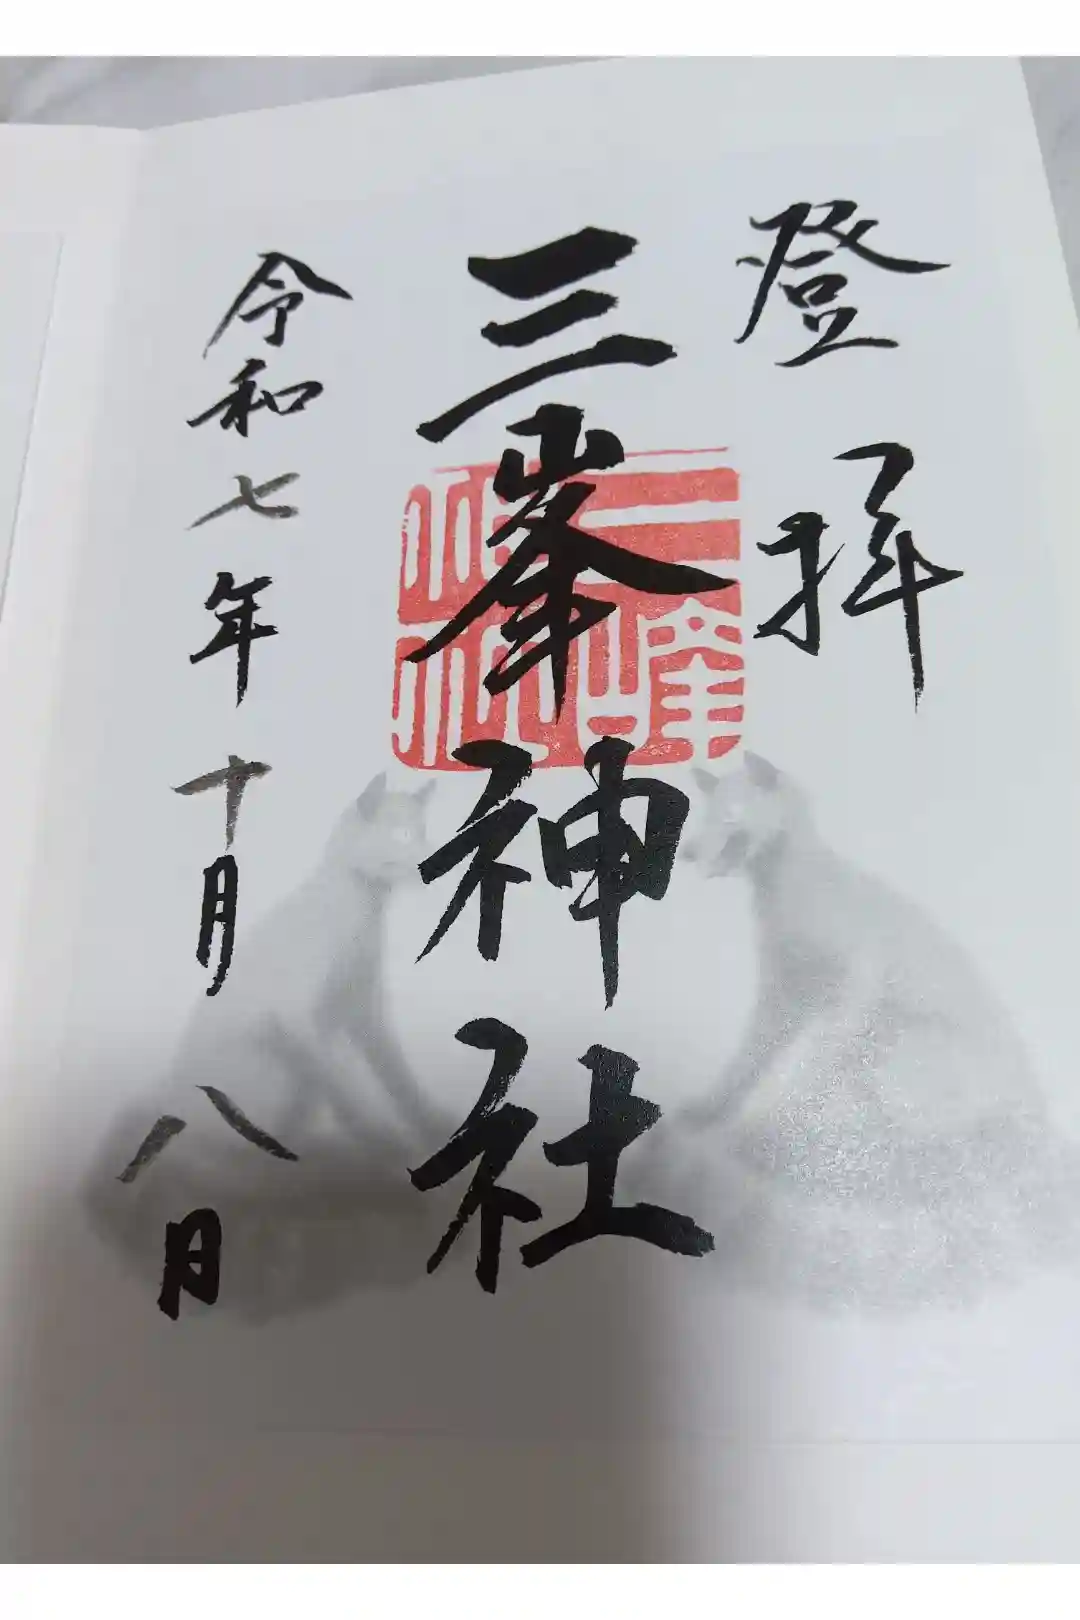 登拝
三峯神社
三峰神社
令和七年十月八日